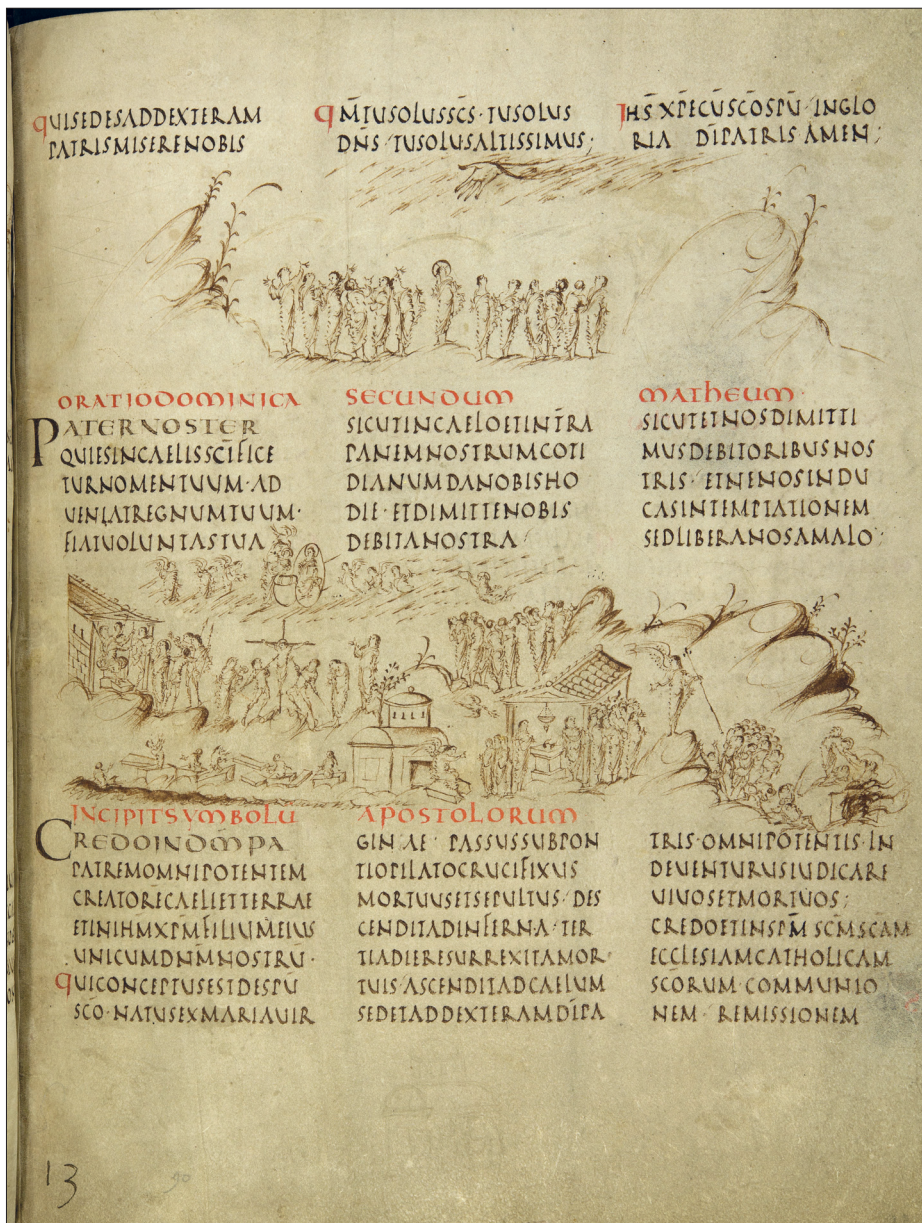 QUISEDESADDEXTERAM
PATRISMISERENOBIS
QM̄TUSOLUSSC̄S·TUSOLUS
DN̄S·TUSOLUSALTISSIMUS;
IHS̄ XP̄ECŪSC̄OSPŪ·INGLO
RIA DĪPATRIS AMEN;
ORATIODOMINICA
PATERNOSTER
QUIESINCAELISSC̄IFICE
TURNOMENTUUM·AD
UENIATREGNUMTUUM·
FIATUOLUNTASTUA
SECUNDUM
SICUTINCAELOETINT̄RA
PANEMNOSTRUMCOTI
DIANUMDANOBISHO
DIE·ETDIMITTENOBIS
DEBITANOSTRA
MATHEUM·
SICUTETNOSDIMITTI
MUSDEBITORIBUSNOS
TRIS·ETNENOSINDU
CASINTEMPTATIONEM
SEDLIBERANOSAMALO;
INCIPITSYMBOLU
CREDOINDM̄PA
PATREMOMNIPOTENTEM
CREATORĒCAELIETTERRAE
ETINIHM̄XPM̄FILIUMEIUS
UNICUMDNM̄NOSTRŪ·
QUICONCEPTUSESTDESPU
SC̄O·NATUSEXMARIAUIR
APOSTOLORUM
GINAE·PASSUSSUBPON
TIOPILATOCRUCIFIXUS
MORTUUSETSEPULTUS·DES
CENDITADINFERNA·TER
TIADIERESURREXITAMOR
TUIS·ASCENDITADCAELUM
SEDETADDEXTERAMDĪPA
TRIS·OMNIPOTENTIS·IN
DEUENTURUSIUDICARE
UIUOSETMORTUOS;
CREDOETINSPM̄SCM̄SCAM
ECCLESIAMCATHOLICAM
SCŌRUM·COMMUNIO
NEM·REMISSIONEM
13